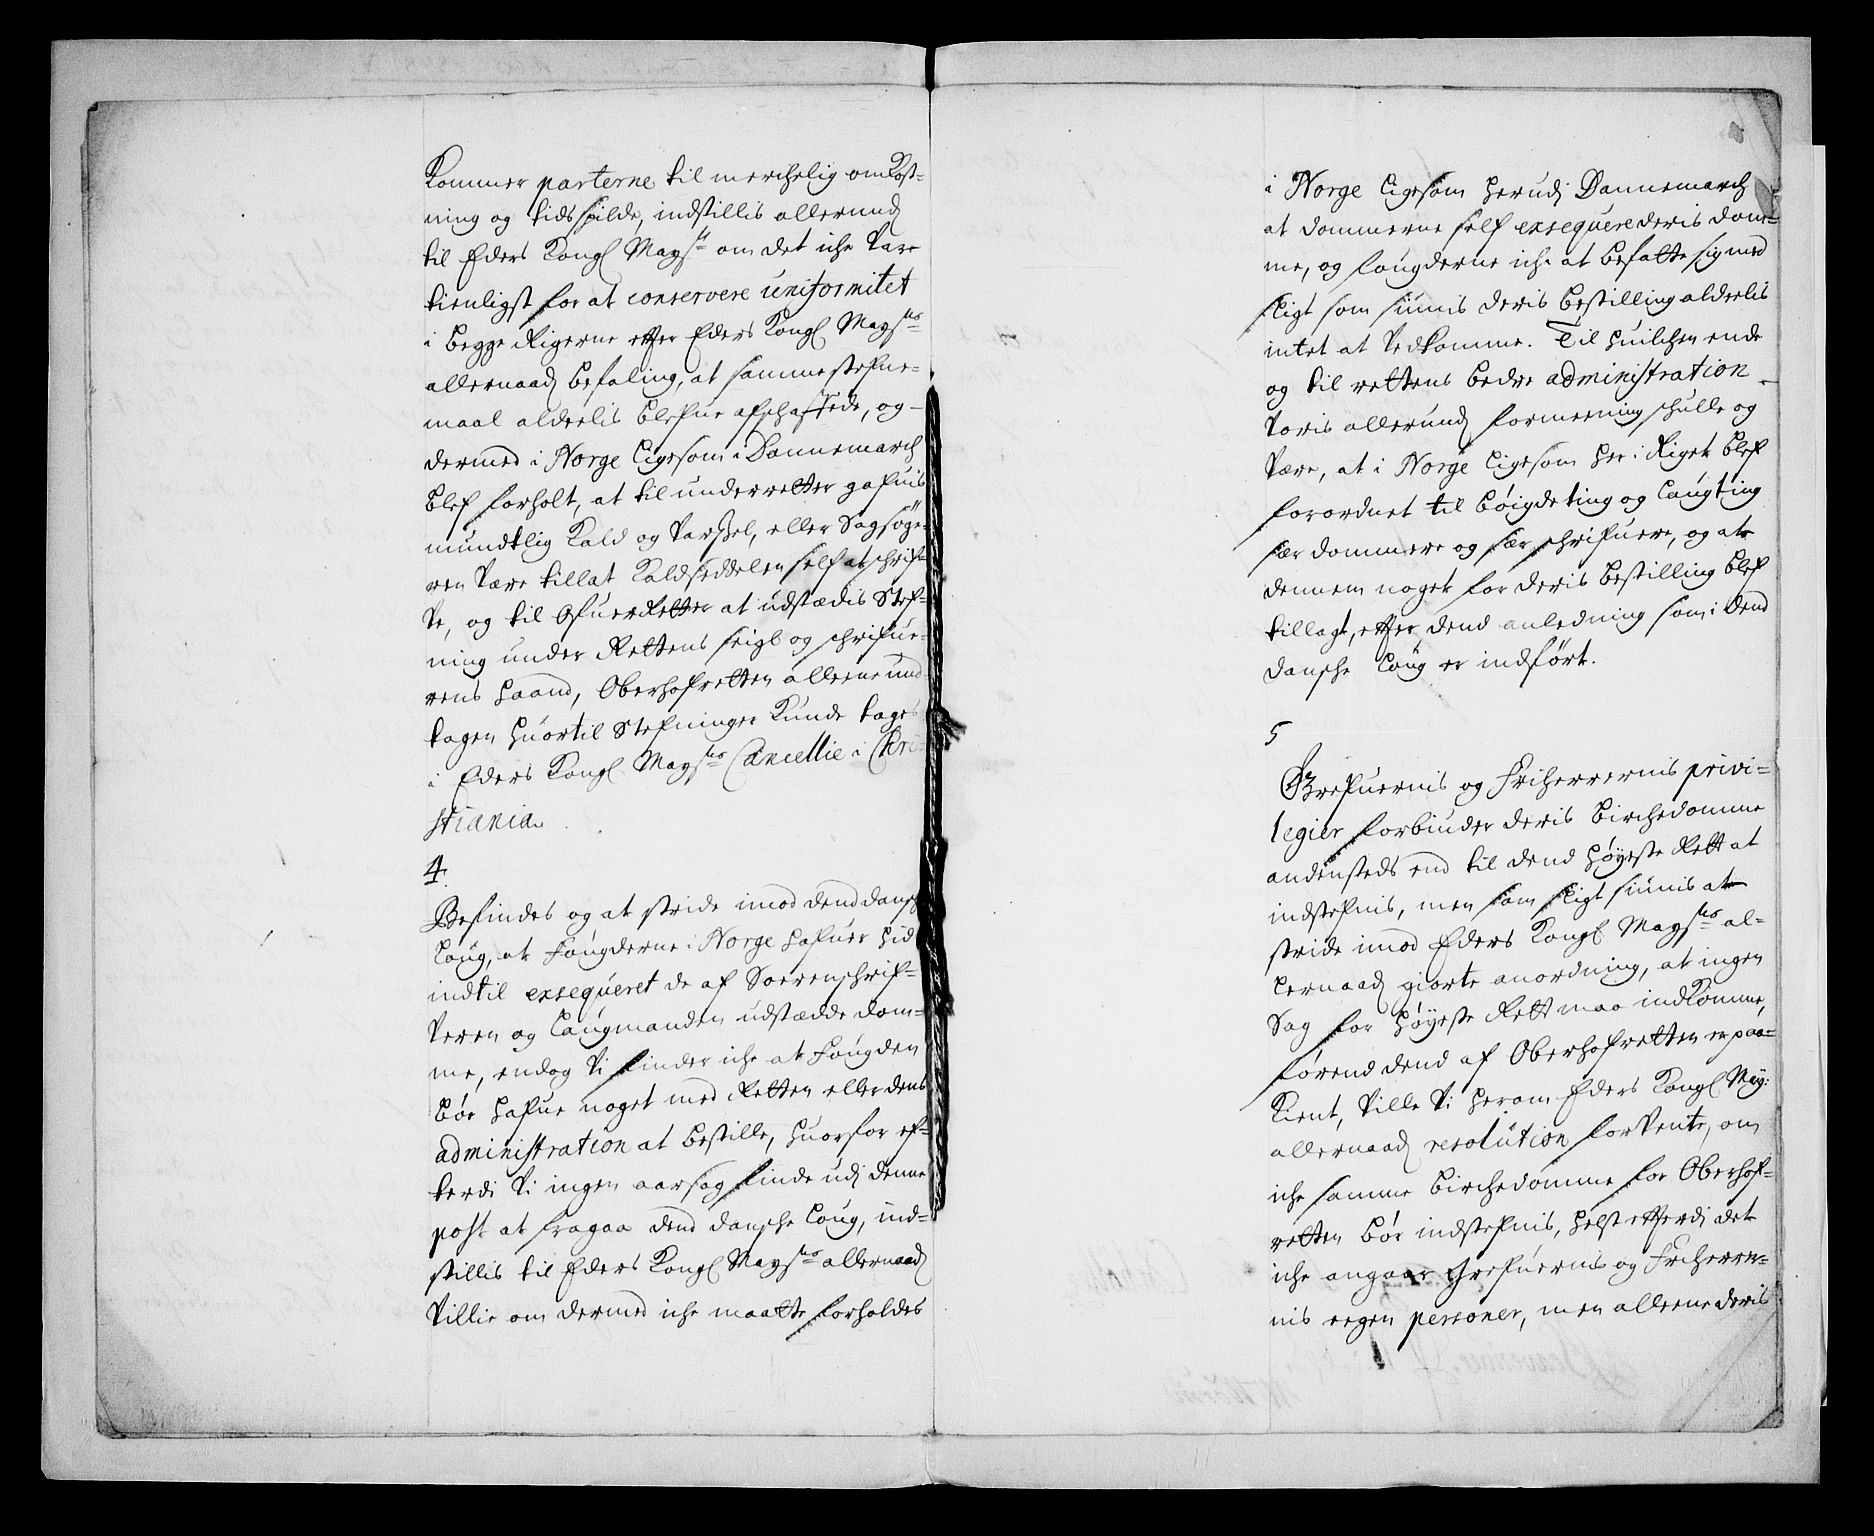 Kommer parterne til merchelig omKost-
ning og tids spilde, indstillis allerund:
til Eders Kongl Mayst om det iche Vare
tienligst for at conservere uniformitet
i begge Rigerne efter Eders Kongl Maysts
allernaad befaling, at samme stefne-
maal alderlis blefue afschaffede, og
dermed i Norge ligesom i Dannemarch
blef forholt, at til underretter gafuis
mundtlig Kald og Varssel, eller Sagsøge-
ren Være tillat Kaldseddelen self at schrif-
Ve, og til OfuerRetter at udstædis Stef-
ning under Rettens seigl og schrifue-
rens haand, Oberhofretten alleene und
tagen huortil Stefninger Kunde tages
i Eders Kongl Maysts Cancellie i Chri-
stiania.
4.
Befindes og at stride imod dend dansch
Loug, at Fougderne i Norge hafuer hid
indtil exsequeret de af Soerenschrif-
Veren og Laugmanden udstædde dom-
me, endog Vi finder iche at Fougden
bør hafue noget med Retten eller dens
administration at bestille, huorfor ef-
terdi Vi ingen aarsag finde udj denne
post at fragaa dend dansche Loug, ind-
stillis til Eders Kongl Maysts allernaad
Villie om dermed iche maatte forholdes
i Norge ligesom herudj Dannemarch
at dommerne self exsequere deris dom-
me, og fougderne iche at befatte sig med
sligt som siunis deris bestilling alderlis
intet at Vedkomme. Til huilchen ende
og til rettens bedre administration
Voris allerund formeening schulle og
Være, at i Norge ligesom her i Riget blef
forordnet til bøigdeting og Laugting
sær dommere og sær schrifuere, og at
dennem noget for deris bestilling blef
tillagt, efter dend anledning som i dend
dansche Loug er indført.
5
Grefuernis og Friherrernis privi-
legier forbinder deris birchedomme
andensteds end til dend høyeste Rett at
indstefnis, men som sligt siunis at
stride imod Eders Kongl Maysts al-
lernaad giorte anordning, at ingen
Sag for høyeste Rett maa indKomme,
førend dend af Oberhofretten er paa-
Kient, Ville Vi herom Eders Kongl May:
allernaad resolution forVente, om
iche samme birchedomme for Oberhof-
retten bør indstefnis, helst efterdi det
iche angaar Grefuernis og Friherrer-
nis eegen personer, men alleene deris